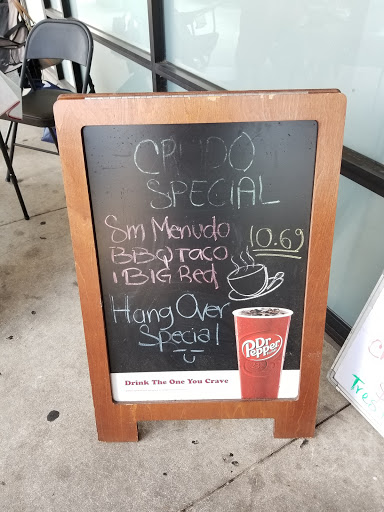 CRUDO
SPECIAL
Sm Menudo
BBQ TACO
1 BIG Red
10.69
Hang Over
Special
Dr Pepper
Drink The One You Crave